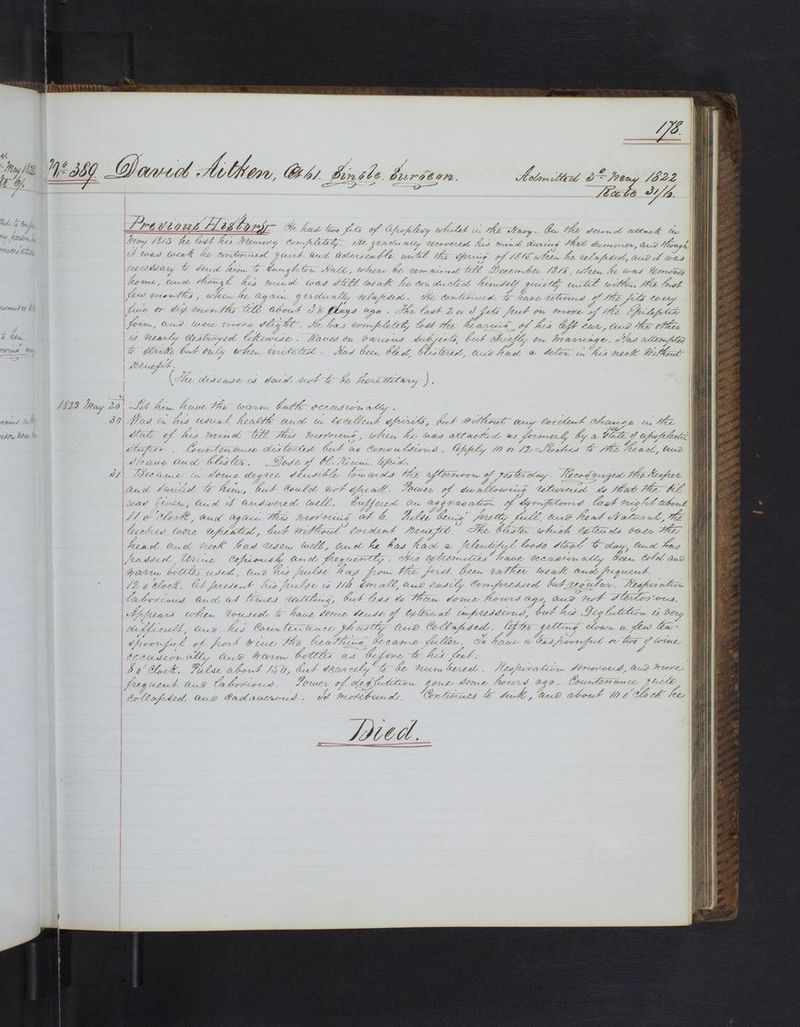 178.
No. 389 David Aitken, Single. Surgeon. Admitted 3d May 1822
Rate 31/6.
Previous History He had two fits of Apoplexy whilst in the Navy. On the second attack in
May 1813 he lost his Memory completely. He gradually recovered his mind during that summer, and though
it was weak he continued quiet and until the Spring of 1815, when he relapsed, and it was
necessary to send him to Hall, where he remained till December 1818, when he was removed
home, and though his mind was still weak he conducted himself quietly until within the last
few months, when he again gradually relapsed. He continued to have returns of the fits every
five or six months till about days ago. The last 2 or 3 fits put on more of the Epileptic
form, and were more slight. He has completely lost the hearing of his left ear, and the other
is nearly destroyed likewise. Raves on various subjects, but chiefly on marriage. Has attempted
to strike but only when irritated. Has been bled, blistered, and had a Seton in his neck without
Benefit.
(The disease is said not to be hereditary).
1822 May Let him have the warm bath occasionally.
30 Was in his usual health and in excellent spirits, but without any evident change in the
state of his mind till this morning, when he was attacked as formerly by a State of apoplectic
stupor. Countenance distorted but no convulsions. Apply 10 or 12 Leeches to the head, and
Shave and blister. Dose of Ol. Ricini
31 Became in some degree sensible towards the afternoon of yesterday. Recognized the Keeper
and smiled to him, but could not speak. Power of swallowing returned so that the Oil
was given, and it answered well. Suffered an aggravation of symptoms last night about
11 o'clock, and again this morning at 6. Pulse being pretty full, and heat Natural, the
leeches were repeated, but without evident benefit. The blister which extends over the
head and neck has risen well, and he has had a plentiful loose stool to day, and has
passed Urine copiously and frequently. His extremities have occasionally been cold and
warm bottles used, and his pulse has from the first been rather weak and frequent.
12 o'clock. At present his pulse is 116 small, and easily compressed but regular. Respiration
laborious and at times rattling, but less so than some hours ago, and not stertorous.
Appears when roused to have some sense of external impressions, but his Deglutition is very
difficult, and his Countenance ghastly and Collapsed. After getting down a few tea-
spoonful of port wine the breathing became Stiller. To have a teaspoonful or two of wine
occasionally, and warm bottles as before to his feet.
8 o'clock. Pulse about 150, but scarcely to be numbered. Respiration sonorous, and more
frequent and laborious. Power of deglutition gone some hours ago. Countenance quite
collapsed and cadaverous. Is moribund. Continues to sink, and about 10 o'clock he
Died.